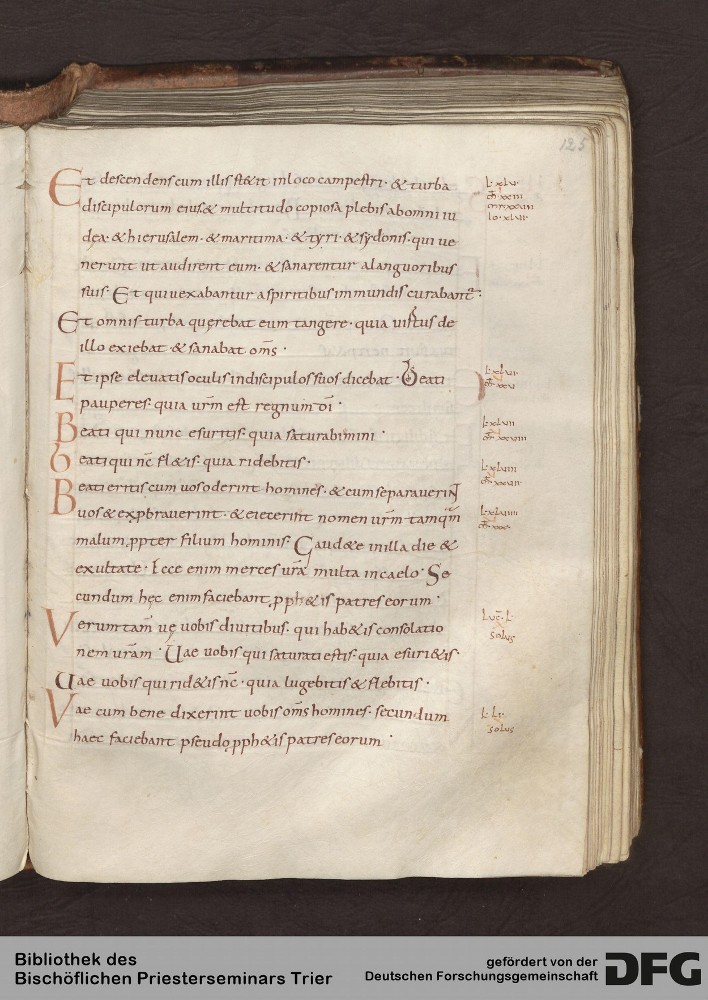 125
Et descendens cum illis st&it inloco campestri · & turba
discipulorum eius & multitudo copiosa plebis abomni iu
dęa · & hierusalem · & maritima · & tyri · & sydonis · qui ue
nerunt ut audirent eum · & sanarentur alanguoribus
suis · Et qui uexabantur aspiritibus inmundis curabant᷒ ·
Et omnis turba quęrebat eum tangere · quia uirtus de
illo exiebat & sanabat om̄s ·
Et ipse eleuatis oculis indiscipulos suos dicebat · Beati
pauperes · quia ur̄m est regnum dī ·
Beati qui nunc esuritis · quia saturabimini ·
Beati qui nc̄ fl&is · quia ridebitis ·
Beati eritis cum uos oderint homines · & cum separauerint
uos & exprobrauerint · & eiecerint nomen ur̄m tamqua̅m
malum ꝓpter filium hominis · Gaud&e inilla die &
exultate · Ecce enim merces ur̄a multa incaelo · Se
cundum hęc enim faciebant ꝓph&is patres eorum ·
Verumtam̄ uę uobis diuitibus · qui hab&is consolatio
nem ur̄am · Uae uobis qui saturati estis · quia esuri&is ·
Uae uobis qui rid&is nc̄ · quia lugebitis & flebitis ·
Vae cum bene dixerint uobis om̄s homines · secundum
haec faciebant pseudoꝓph&is patres eorum ·
L · xlvi
L · xlvii
L · xlviii
L · xlviiii
Luc̄ · L
solus
L · Li
solus
Bibliothek des
Bischöflichen Priesterseminars Trier
gefördert von der
Deutschen Forschungsgemeinschaft
DFG